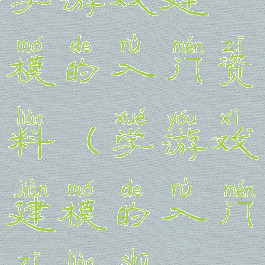 学游戏建
mó de rù mén zī
模的入门资
liào xué yóu xì
料（学游戏
jiàn mó de rù mén
建模的入门
zī liào shū